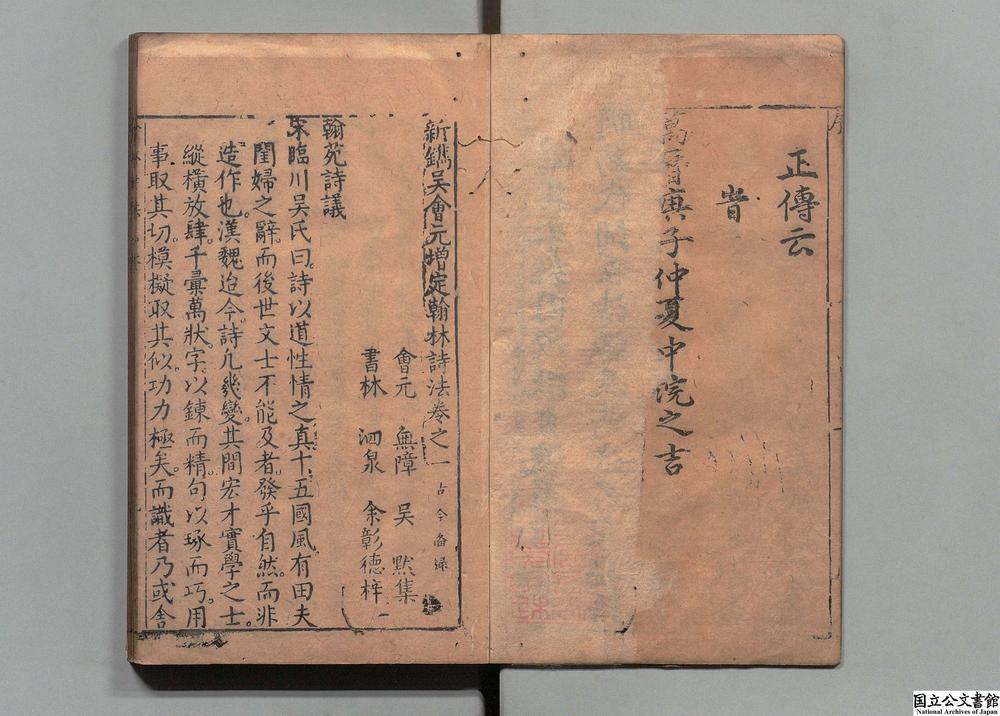 正傳云
旹
萬曆庚子仲夏中院之吉
新鐫吳會元增定翰林詩法卷之一
會元 無障 吳 默集
書林 泗泉 余彰德梓
翰苑詩議
宋臨川吳氏曰詩以道性情之真十五國風有田夫
閨婦之辭而後世文士不能及者發乎自然而非
造作也漢魏迨今詩凡幾變其間宏才實學之士
縱橫放肆千彙萬狀字以鍊而精句以琢而巧用
事取其切模擬取其似功力極矣而識者乃或舍
国立公文書館
National Archives of Japan